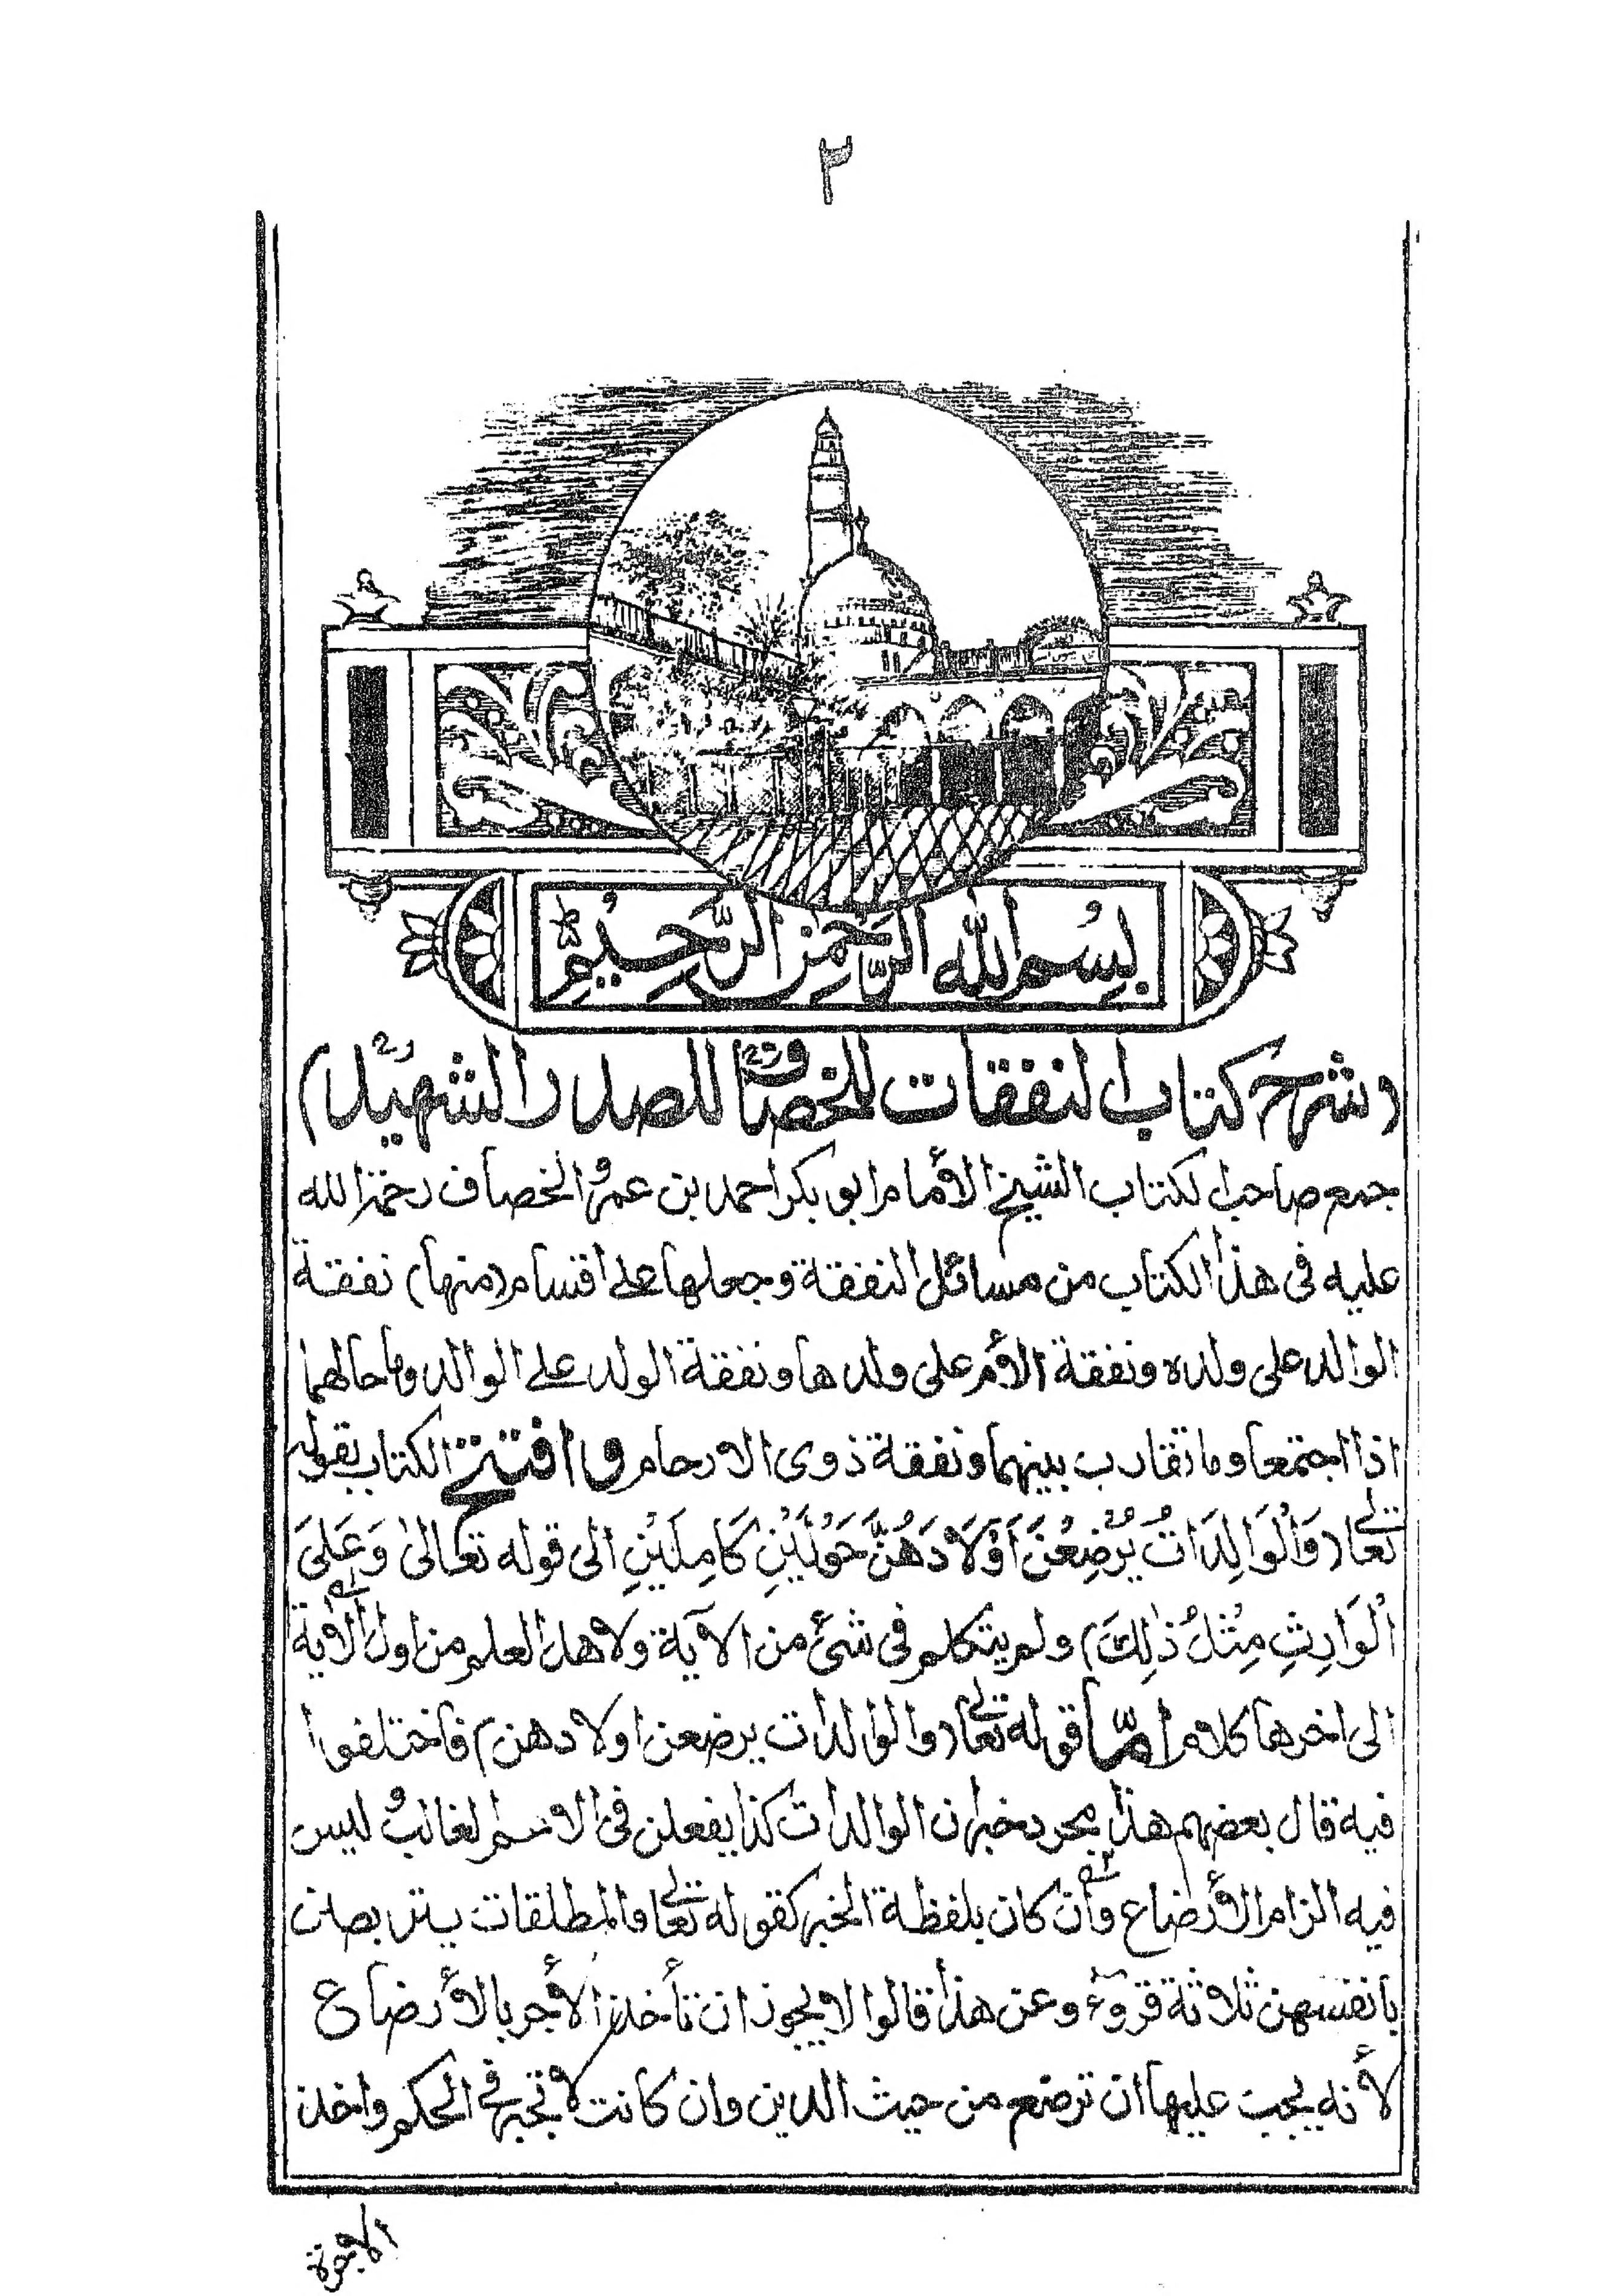 ٢
بسم الله الرحمن الرحيم
(شرح كتاب النفقات للخصاف للصدر الشهيد)
جمع صاحب الكتاب الشيخ الأمام ابو بكر احمد بن عمرو الخصاف رحمة الله
عليه فى هذا الكتاب من مسائل النفقة وجعلها على اقسام (منها) نفقة
الوالد على ولده ونفقة الأم على ولدها ونفقة الولد على الوالد وما حالهما
اذا اجتمعا وما تقارب بينهما ونفقة ذوى الارحام و افتتح الكتاب بقوله
تعالى (وَالْوَالِدَاتُ يُرْضِعْنَ اَوْلَادَهُنَّ حَوْلَيْنِ كَامِلَيْنِ الى قوله تعالىٰ وَعَلىَ
الْوَارِثِ مِثْلُ ذٰلِكَ) ولم يتكلم فى شئ من الآية ولاهل العلم من اول الآية
الى اخرها كلام امّا قوله تعالى (والوالدات يرضعن اولادهن) فاختلفوا
فيه قال بعضهم هذا مجرد خبر ان الوالدات كذا يفعلن فى الا لغالب وليس
فيه الزام الأرضاع وان كان بلفظة الخبر كقوله تعالى والمطلقات يتربصن
بانفسهن ثلاثة قروء وعن هذا قالوا لا يجوز ان تأخذ الأجر بالأرضاع
لأنه يجب عليها ان ترضع من حيث الدين وان كانت لا تجبر فى الحكم واخذ
الاجرة